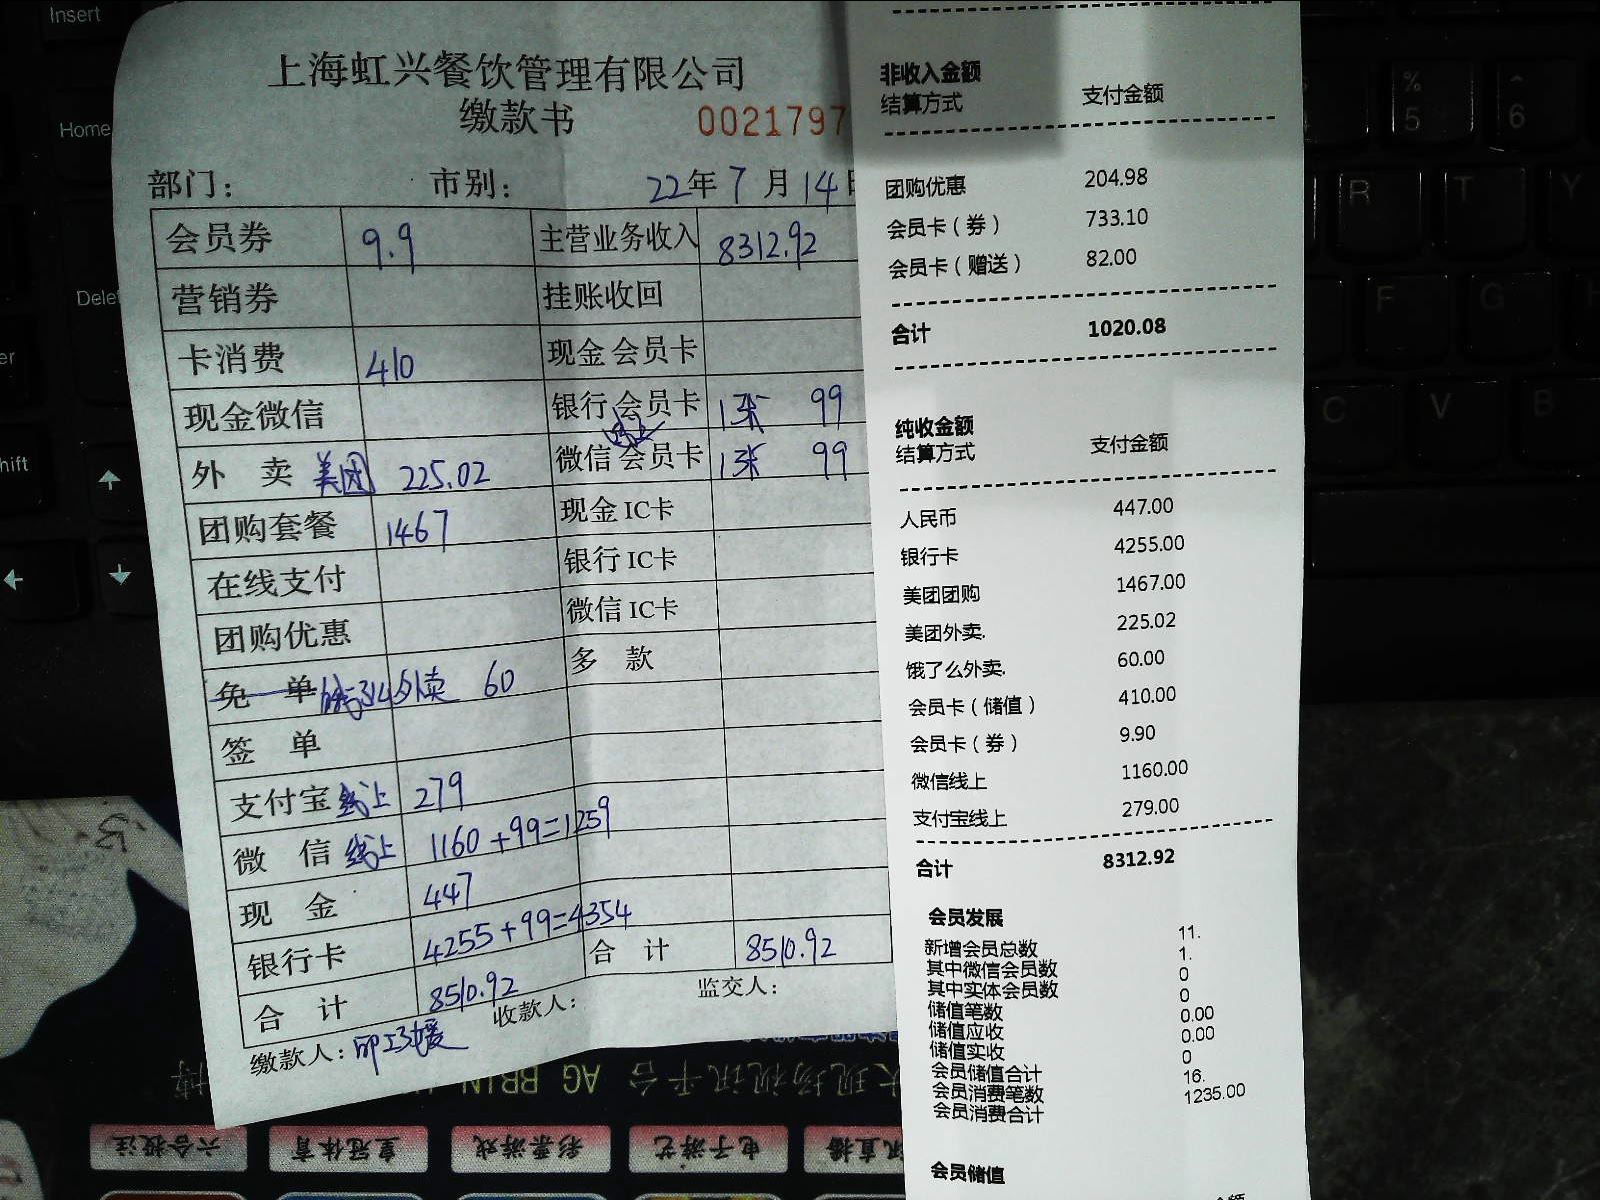 上海虹兴餐饮管理有限公司
缴款书 0021797
部门： 市别： 22年7月14日
会员券 9.9 主营业务收入 8312.92
营销券 挂账收回
卡消费 410 现金会员卡
现金微信 银行会员卡 1张 99
外 卖 美团 225.02 微信会员卡 1张 99
团购套餐 1467 现金IC卡
在线支付 银行IC卡
团购优惠 微信IC卡
免 单 外卖 60 多 款
签 单
支付宝 线上 279
微 信 线上 1160+99=1259
现 金 447
银行卡 4255+99=4354 合 计 8510.92
合 计 8510.92
缴款人： 收款人： 监交人：
非收入金额
结算方式 支付金额
团购优惠 204.98
会员卡（券） 733.10
会员卡（赠送） 82.00
合计 1020.08
纯收金额
结算方式 支付金额
人民币 447.00
银行卡 4255.00
美团团购 1467.00
美团外卖. 225.02
饿了么外卖. 60.00
会员卡（储值） 410.00
会员卡（券） 9.90
微信线上 1160.00
支付宝线上 279.00
合计 8312.92
会员发展
新增会员总数 11.
其中微信会员数 1.
其中实体会员数 0
储值笔数 0
储值应收 0.00
储值实收 0.00
会员储值合计 0
会员消费笔数 16.
会员消费合计 1235.00
会员储值
Insert
Home
Shift
% 5
^ 6
R T Y
F G
C V B
现场视讯平台 AG
六合投注
皇冠体育
彩票游戏
电子游艺
直播